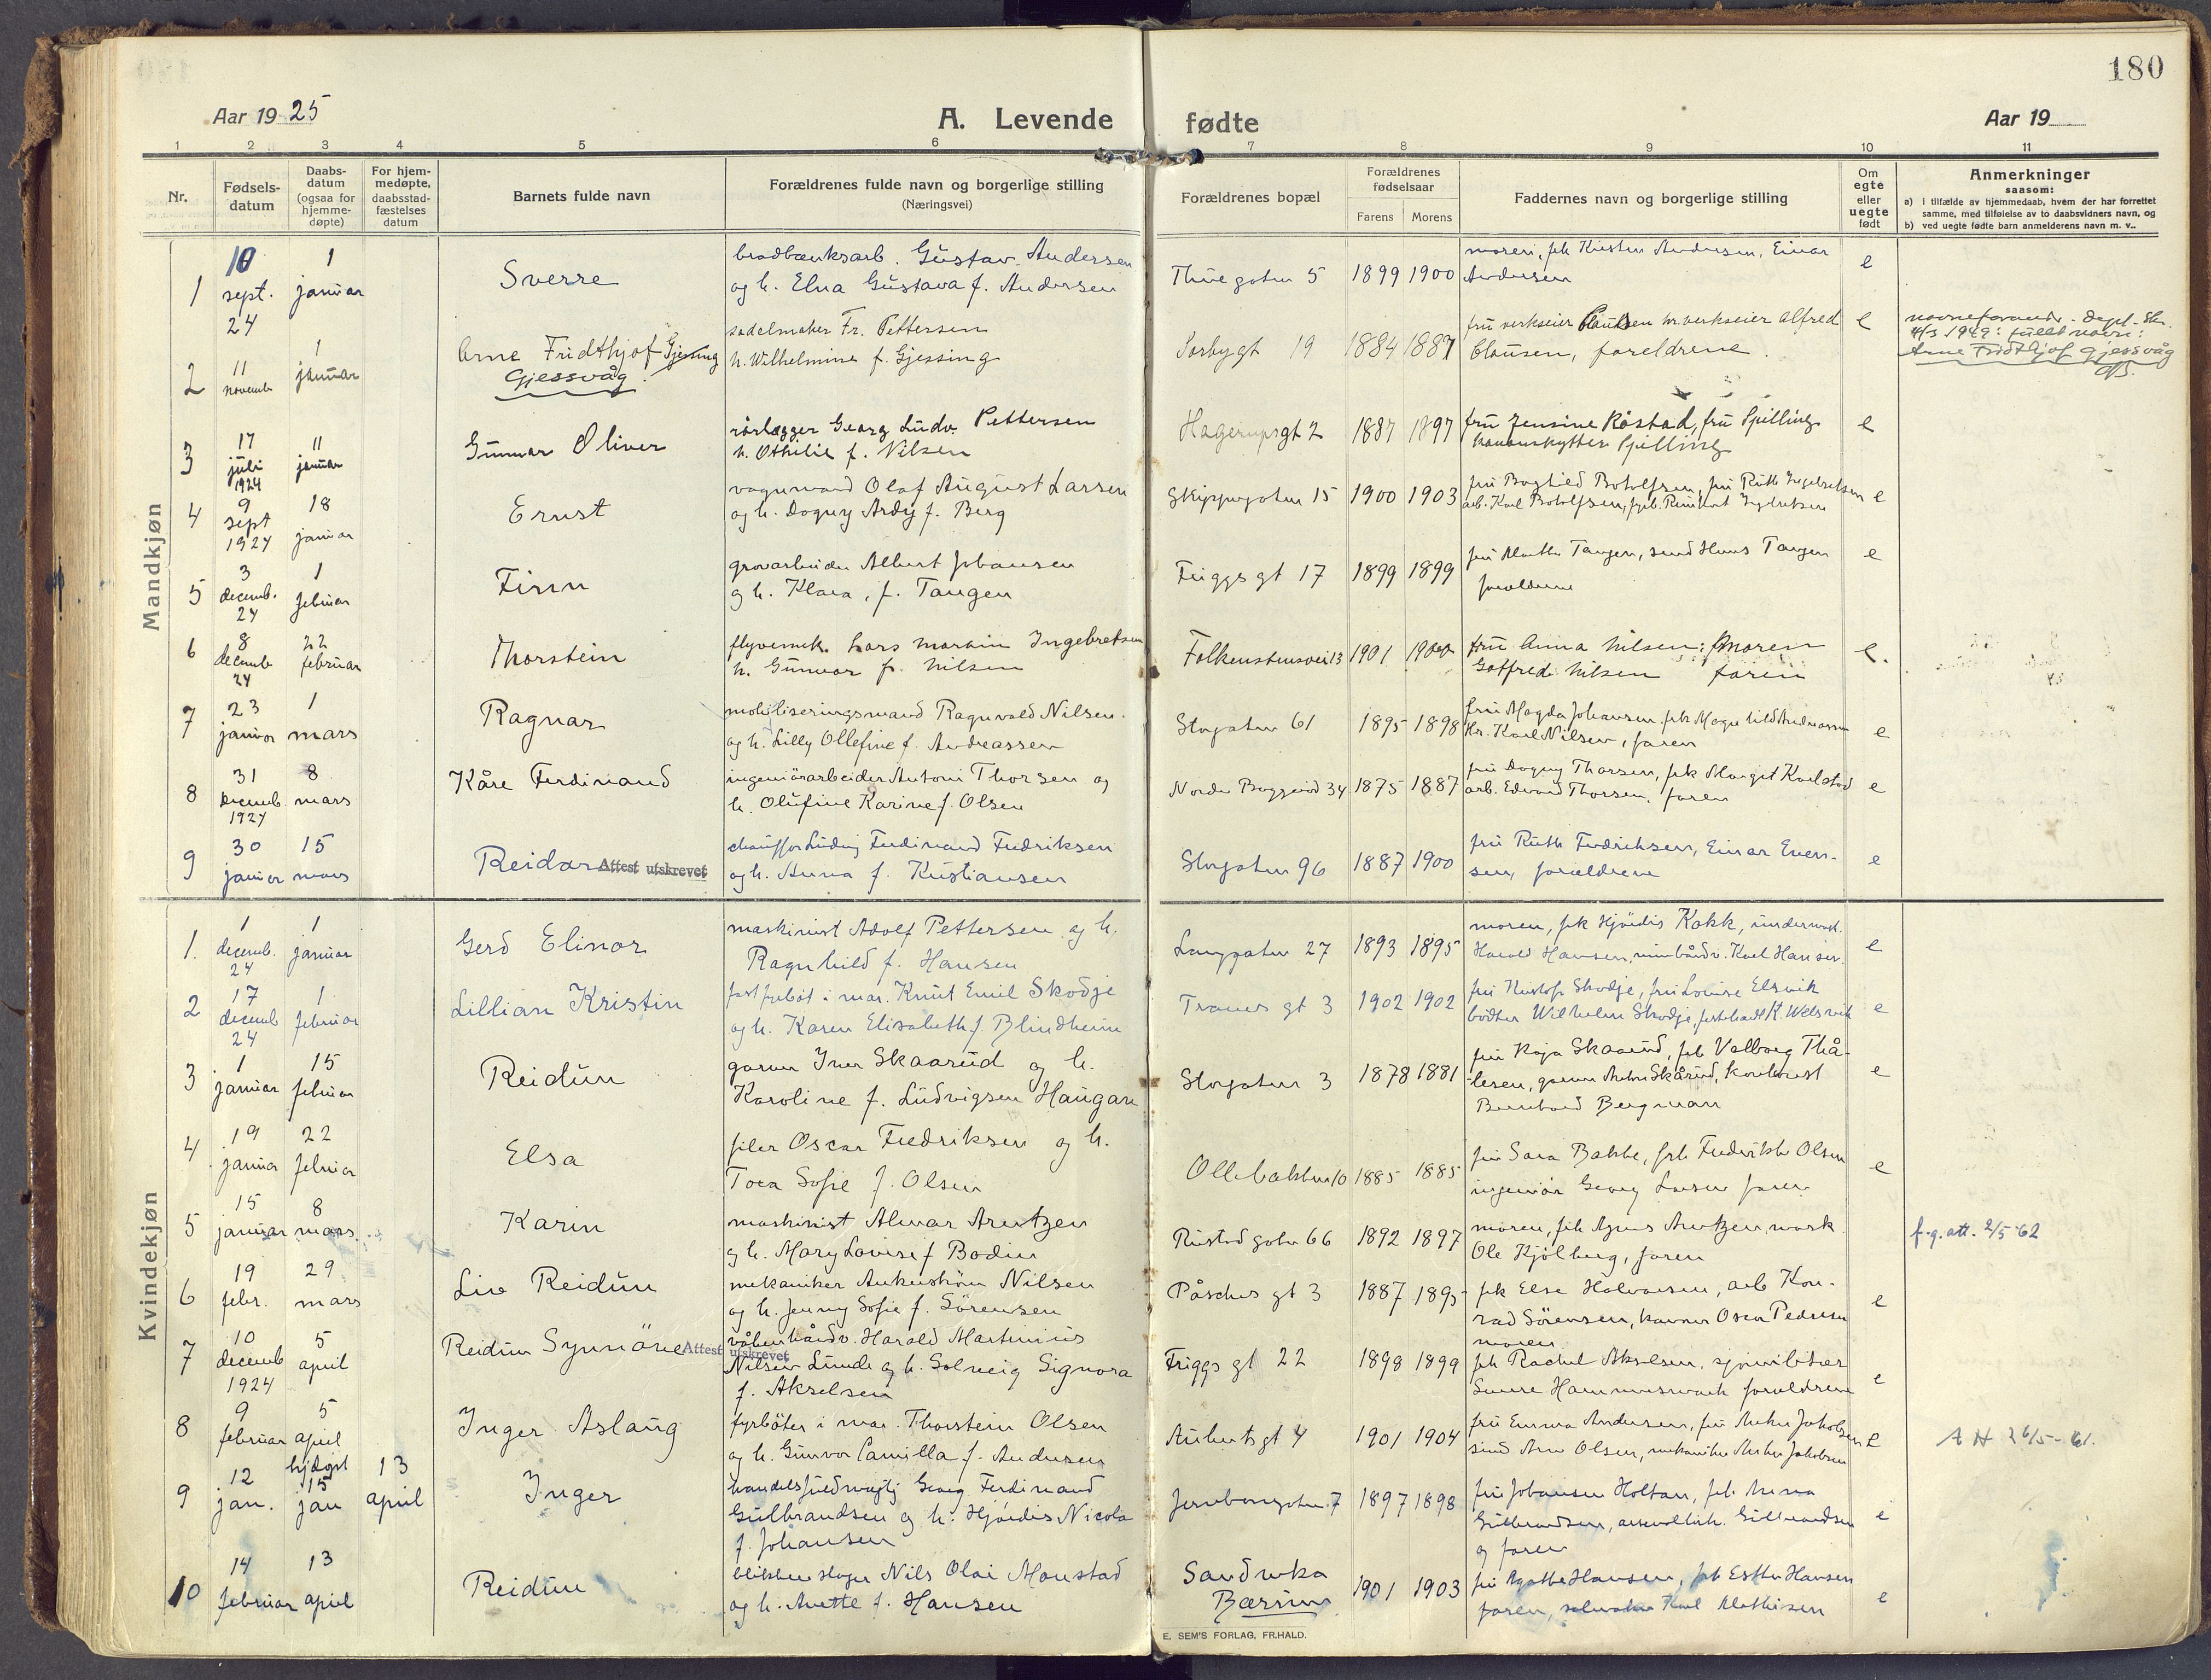 180
Aar 1925
A. Levende fødte
Aar 19
1 2 3 4 5 6 7 8 9 10 11
Nr.
Fødsels-
datum
Daabs-
datum
(ogsaa for
hjemme-
døpte)
For hjem-
medøpte,
daabsstad-
fæstelses
datum
Barnets fulde navn
Forældrenes fulde navn og borgerlige stilling
(Næringsvei)
Forældrenes bopæl
Forældrenes
fødselsaar
Farens Morens
Faddernes navn og borgerlige stilling
Om
egte
eller
uegte
født
Anmerkninger
saasom:
a) i tilfælde av hjemmedaab, hvem der har forrettet
samme, med tilføielse av to daabsvidners navn, og
b) ved uegte fødte barn anmelderens navn m. v..
Mandkjøn
1
10 sept. 24
1 januar
Sverre
Gustav Andersen
og h. Elna Gustava f. Andersen
Thuegaten 5
1899 1900
moren, frk Kirsten Andersen, Einar
Andersen
e
2
11 novemb
1 januar
Arne Fridthjof Gjessing
Gjessvåg
sadelmaker Fr. Pettersen
h. Wilhelmine f. Gjessing
Sorbygt 19
1884 1887
fru verkseier Clausen hr. verkseier Alfred
Clausen, foreldrene
e
1949: fullt navn:
Arne Fridthjof Gjessvåg
3
17 juli 1924
11 januar
Gunnar Oliver
rörlægger Georg Ludv. Pettersen
h. Othilie f. Nilsen
Hagerupsgt 2
1887 1897
fru Jensine Råstad, fru Spilling
kanonskytter Spilling
e
4
9 sept 1924
18 januar
Ernst
vognmand Olaf August Larsen
og h. Dagny Ardy f. Berg
Skippergaten 15
1900 1903
fru Botolfsen, fru Ruth Ingebretsen
arb. Karl Botolfsen, Ingebretsen
e
5
3 decemb. 24
1 februar
Finn
grovarbeider Albert Johansen
og h. Klara, f. Tangen
Friggs gt 17
1899 1899
fru Marthe Tangen, smed Hans Tangen
forældrene
e
6
8 decemb 24
22 februar
Thorstein
flyvemek. Lars Martin Ingebretsen
h. Gunvor f. Nilsen
Falkenstensvei 13
1901
fru Anna Nilsen, moren
Gotfred Nilsen faren
e.
7
23 januar
1 mars
Ragnar
mobiliseringsmand Ragnvald Nilsen
og h. Lilly Ollefine f. Andreassen
Storgaten 61
1895 1898
fru Magda Johansen, frk Magnhild Andreassen
Hr. Karl Nilsen, faren
e
8
31 decemb. 1924
8 mars
Kåre Ferdinand
ingeniörarbeider Antoni Thorsen og
h. Olufine Karine f. Olsen
34
1875 1887
fru Dagny Thorsen, frk Margit Karlstad
arb. Edvard Thorsen, faren
e
9
30 januar
15 mars
Reidar Attest utskrevet
chauffør Ludvig Ferdinand Fredriksen
og h. Anna f. Kristiansen
Storgaten 96
1887 1900
fru Ruth Fredriksen, Einar Even-
sen, forældrene
e
Kvindekjøn
1.
1 decemb. 24
1 januar
Gerd Elinor
maskinist Adolf Pettersen og h.
Ragnhild f. Hansen
Langgaten 27
1893 1895
moren, frk Hjördis Kokk,
Harald Hansen, Karl Hansen.
e
2
17 decemb 24
1 februar
Lillian Kristin
i mar. Knut Emil Skodje
og h. Karen Elisabeth f Blindheim
Tranes gt 3
1902 1902
fru Skodje, fru Lovise Elsvik
Wilhelm Skodje,
e
3
1 januar
15 februar
Reidun
garver Iver Skaarud og h.
Karoline f. Ludvigsen Haugan
Storgaten 3
1878 1881
fru Kaja Skaarud, frk Valborg Thå-
lesen, garver Anton Skårud, kontorist
Bernhard Bergman
e
4
19 januar
22 februar
Elsa
filer Oscar Fredriksen og h.
Tora Sofie f. Olsen
Ollebakken 10
1885 1885
fru Sara Bakke, frk Fredrikke Olsen
ingeniör Georg Larsen faren
e
5
15 januar
8 mars
Karin
maskinist Almar Arntzen
og h. Mary Lovise f Bodin
Rustadgaten 66
1892 1897
moren, frk Agnes Arntzen, mask.
Ole Kjölberg, faren
f.g. att. 2/5-62
6
19 febr.
29 mars
Liv Reidun
mekaniker Ankerström Nilsen
og h. Jenny Sofie f. Sörensen
Påsches gt 3
1887 1895
frk Else Halvorsen, arb Kon-
rad Sörensen, Oscar Pedersen
moren
e
7
10 decemb 1924
5 april
Reidun Synnöve Attest utskrevet
våbenhåndv. Harald Martinius
Nilsen Lunde og h. Solveig Signora
f. Akselsen
Friggs gt 22
1898 1899
frk Rachel Akselsen, sjömilitær
forældrene
e
8
9 februar
5 april
Inger Aslaug
fyrböter i mar. Thorstein Olsen
og h. Gunvor Camilla f. Andersen
Auberts gt 4
1901 1904
fru Emma Andersen, fru Jakobsen
smed Arne Olsen, mekaniker Jakobsen
e
A H 26/5-61.
9
12 jan.
hjdøpt 15 jan
13 april
Inger
Georg Ferdinand
Gulbrandsen og h. Hjördis Nicola
f. Johansen
Jernbanegaten 7
1897 1898
fru Johansen Holtan, frk Anna
Gulbrandsen, Gulbrandsen
og faren
e
10
14 februar
13 april
Reidun
blikkenslager Nils Olai Monstad
og h. Anette f. Hansen
Sandvika
Bærum
1901 1903
fru Agathe Hansen, frk Esther Hansen
faren, Karl Mathisen
e
E. SEM'S FORLAG, FR.HALD.